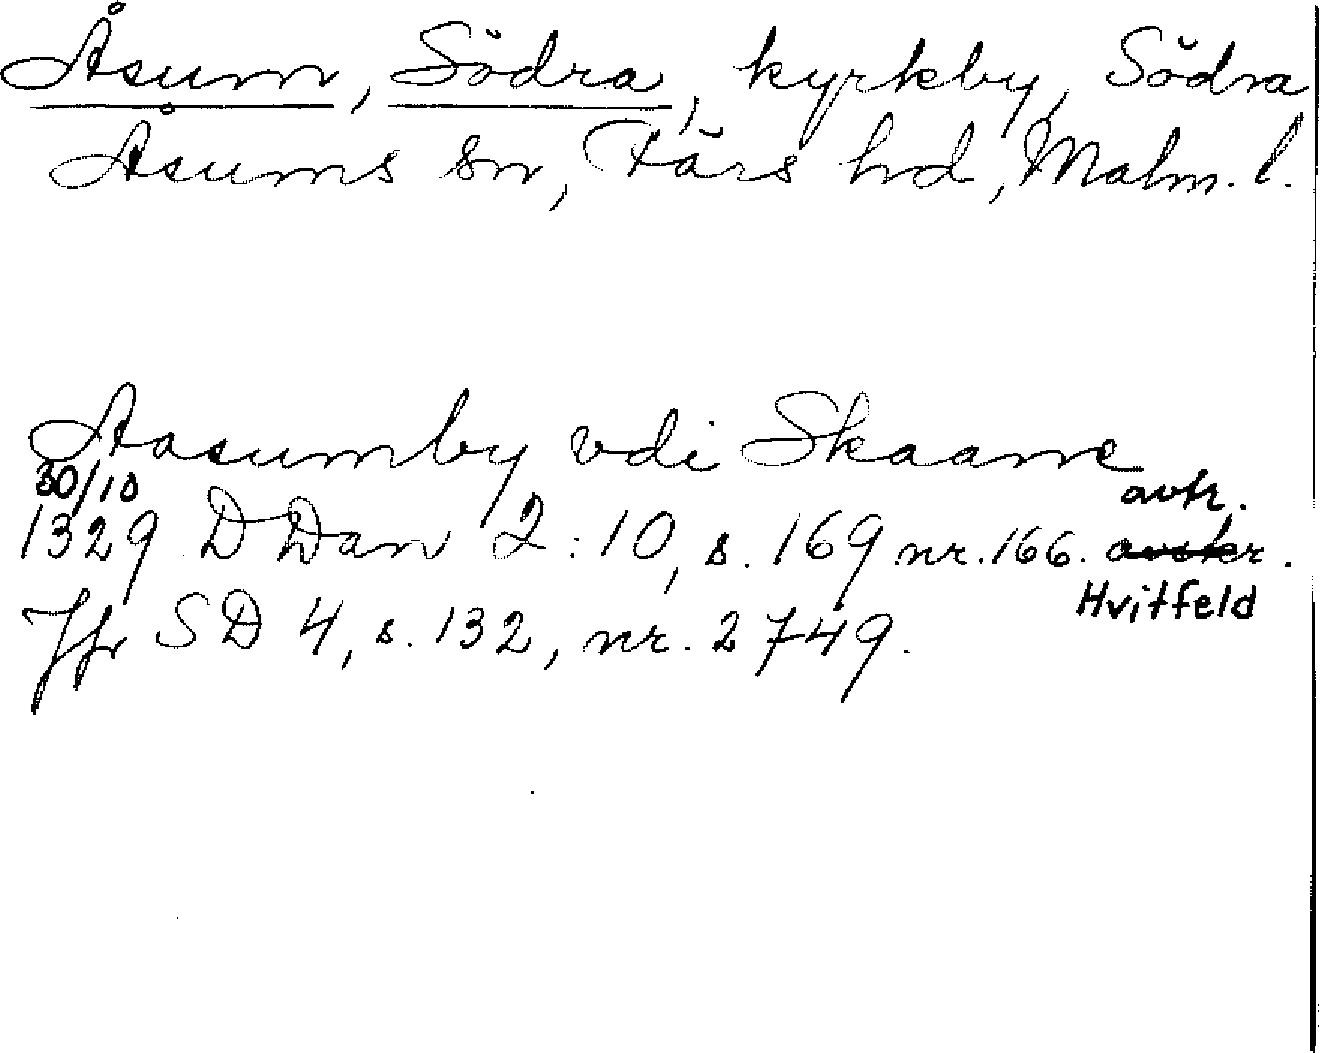 Åsum, Södra, kyrkby, Södra
Åsums sn, Färs hd, Malm. l.
Aasumby vdi Skaane
30/10
1329 DDan 2:10, s. 169 nr. 166. avtr.
Hvitfeld
Jfr SD 4, s. 132, nr. 2749.